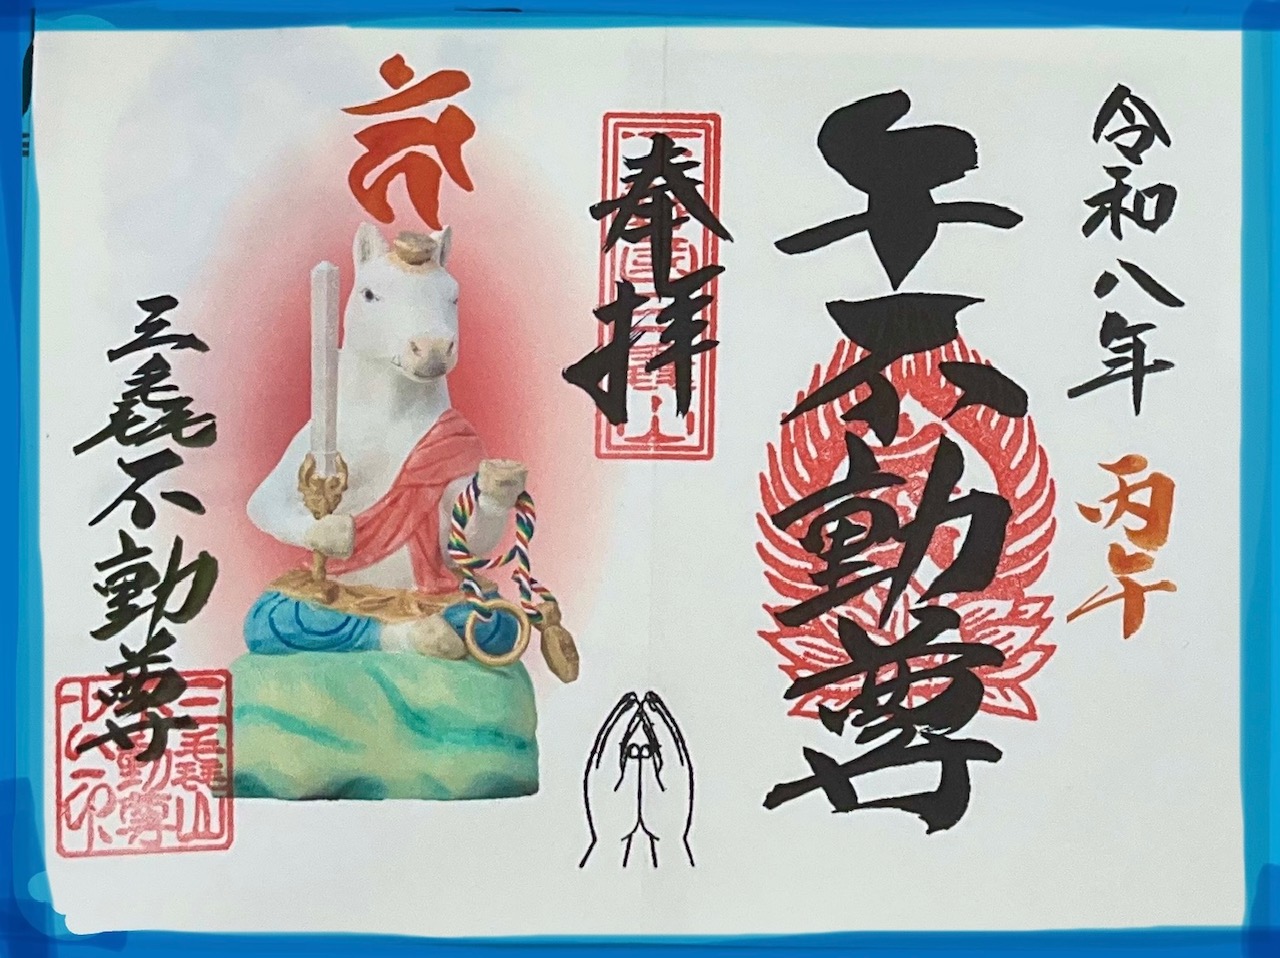 令和八年 丙午
午不動尊
奉拝
三毳不動尊
三毳山
不動尊